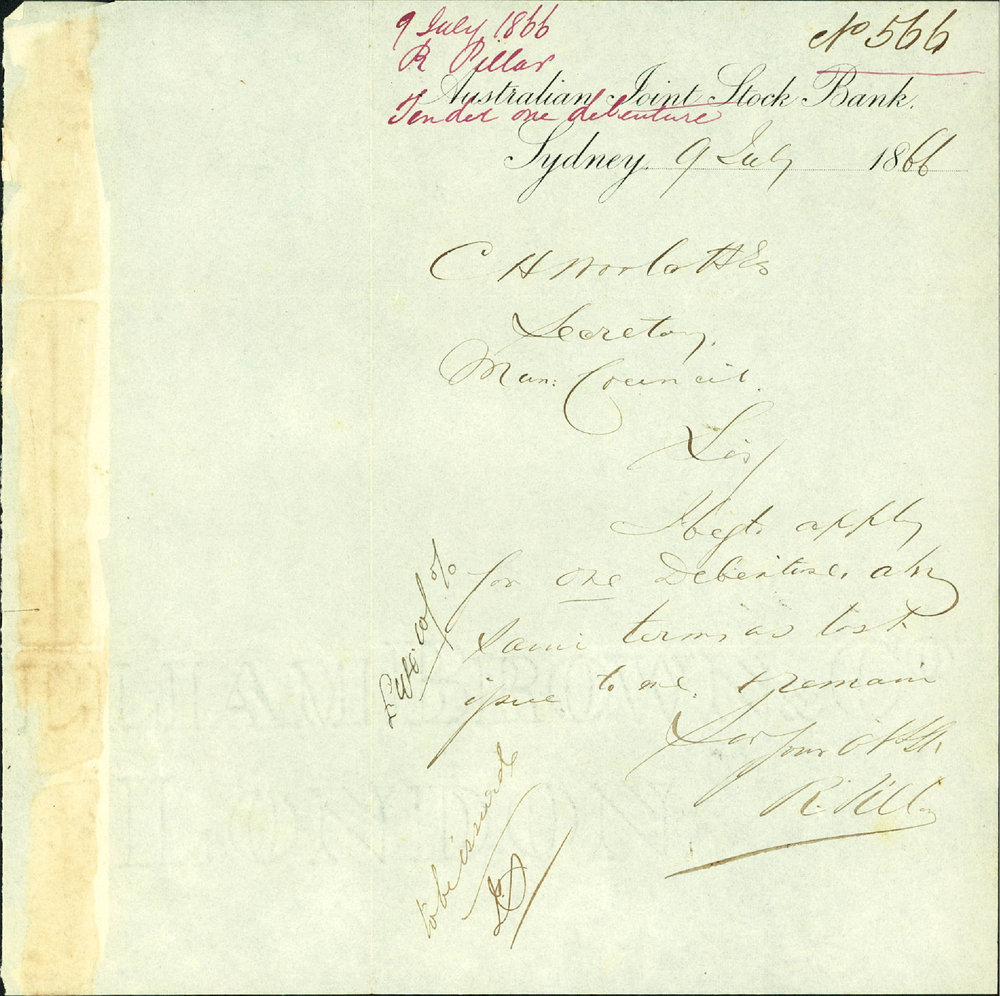 9 July 1866
R Pillar
Tender one debenture
No 566
Australian Joint Stock Bank.
Sydney. 9 July 1866
C H Woolcott Esq
Secretary,
Mun: Council.
Sir
I beg to apply
for one Debenture, also
same terms as last
issue to me. I remain
Sir your Obt St.
R. Pillar
10/ %
to be issued